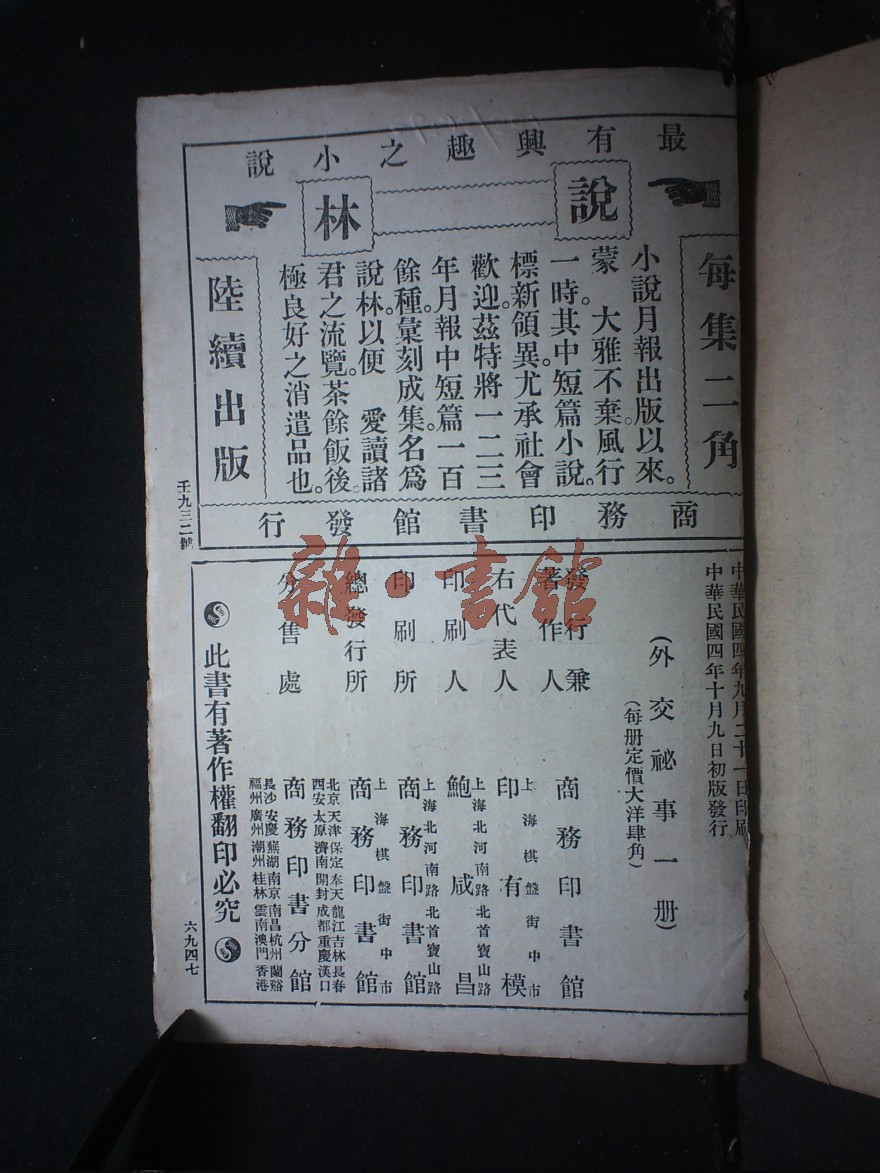 最有興趣之小說
說林
每集二角
小說月報出版以來。
蒙　大雅不棄。風行
一時。其中短篇小說。
標新領異。尤承社會
歡迎。茲特將一二三
年月報中短篇一百
餘種。彙刻成集。名爲
說林。以便　愛讀諸
君之流覽。茶餘飯後。
極良好之消遣品也。
陸續出版
商務印書館發行
壬九三二號
中華民國四年九月二十一日印刷
中華民國四年十月九日初版發行
（外交祕事一册）
（每册定價大洋肆角）
發行兼
著作人
商務印書館
右代表人
上海棋盤街中市
印有模
印刷人
上海北河南路北首寶山路
鮑咸昌
印刷所
上海北河南路北首寶山路
商務印書館
總發行所
上海棋盤街中市
商務印書館
分售處
北京天津保定奉天龍江吉林長春
西安太原濟南開封成都重慶漢口
商務印書分館
長沙安慶蕪湖南京南昌杭州蘭谿
福州廣州潮州桂林雲南澳門香港
此書有著作權翻印必究
六九四七
雜·書館